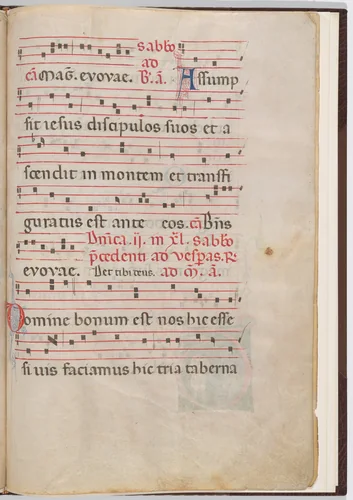 sabbo
ad
cā Mag. evovae. B. ā. Assump
sit iesus discipulos suos et a
scendit in montem et transfi
guratus est ante eos. cā Bn̄s
Dn̄ica. ij. in xl. sabbo
p̄cedenti ad vesp̄as. R.
evovae. Det tibi deus. ad m̄. ā.
Domine bonum est nos hic esse
si vis faciamus hic tria taberna